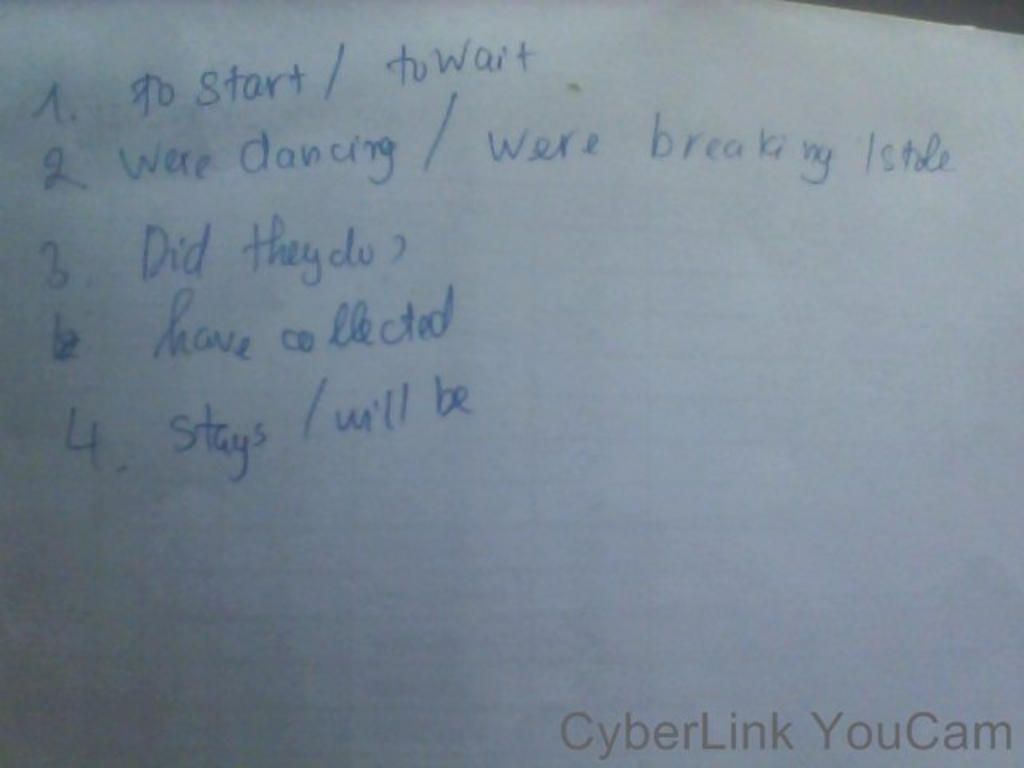 1. to start / to wait
2 were dancing / were breaking / stole
3. Did they do?
b have collected
4. stays / will be
CyberLink YouCam